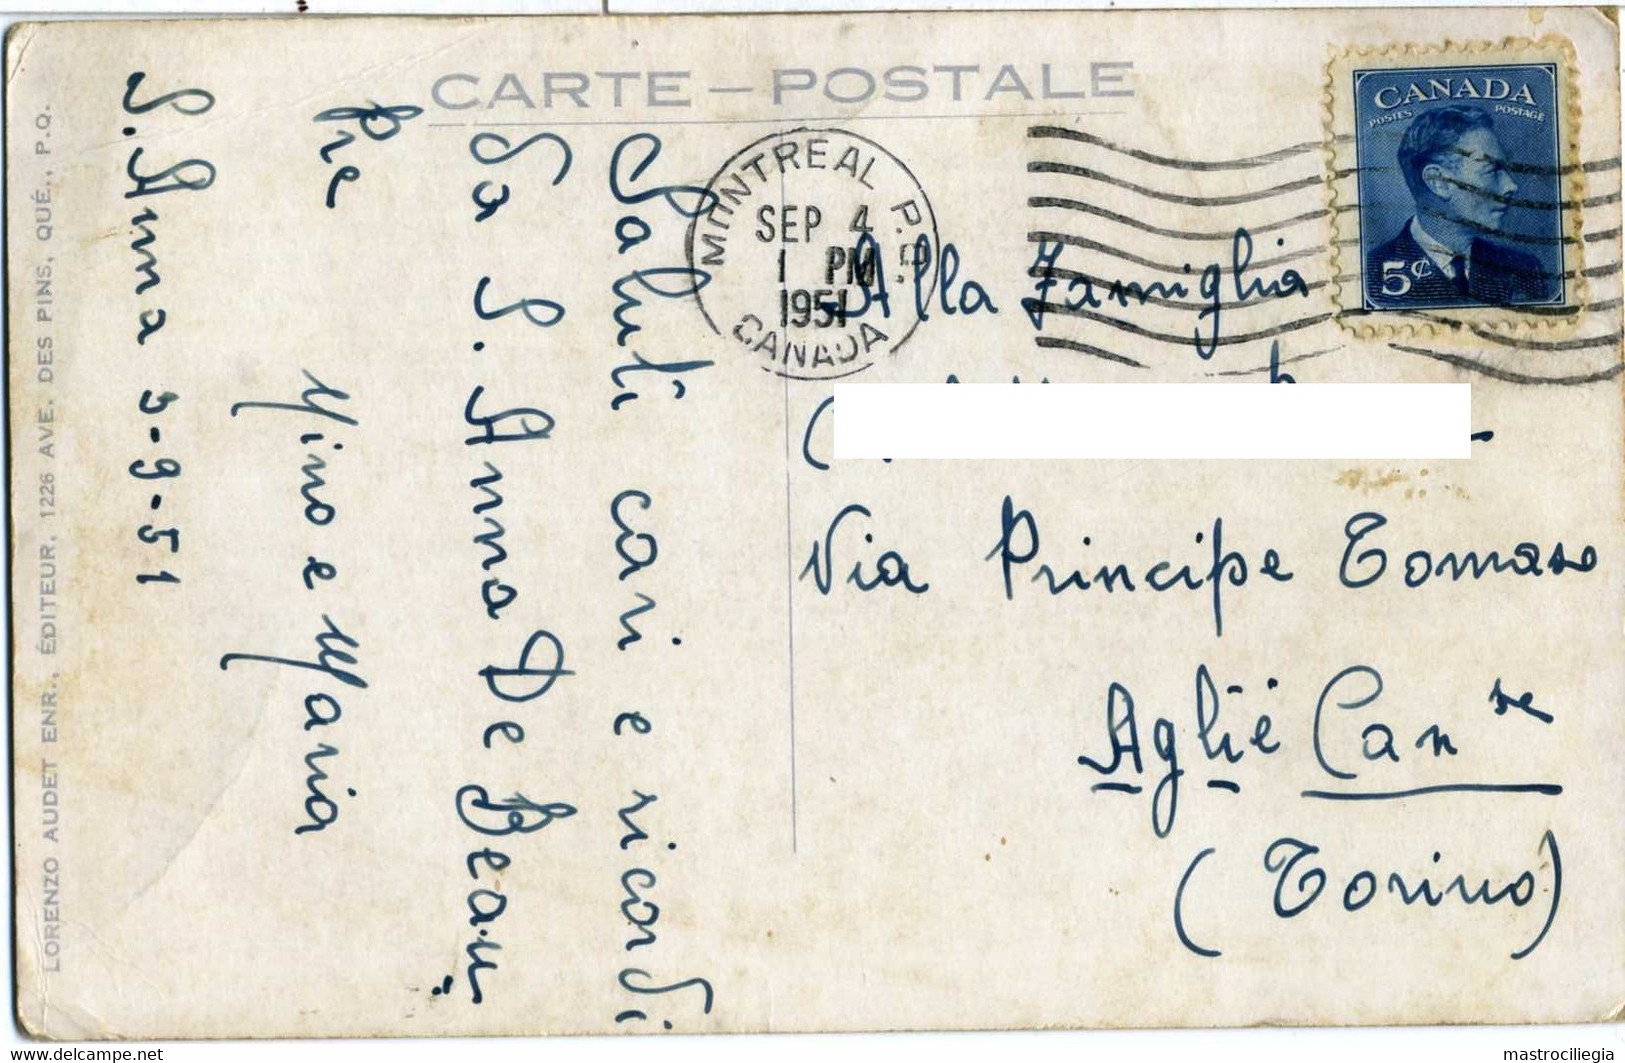 CARTE — POSTALE
CANADA
POSTES POSTAGE
5¢
MONTREAL P.Q.
SEP 4
1 PM
1951
CANADA
Saluti cari e ricordi
Da S. Anna De Beau
Pre
Nino e Maria
S. Anna 3-9-51
Alla Famiglia
Via Principe Tomaso
Agliè Can se
(Torino)
LORENZO AUDET ENR., ÉDITEUR, 1226 AVE. DES PINS, QUÉ., P.Q.
www.delcampe.net
mastrociliegia